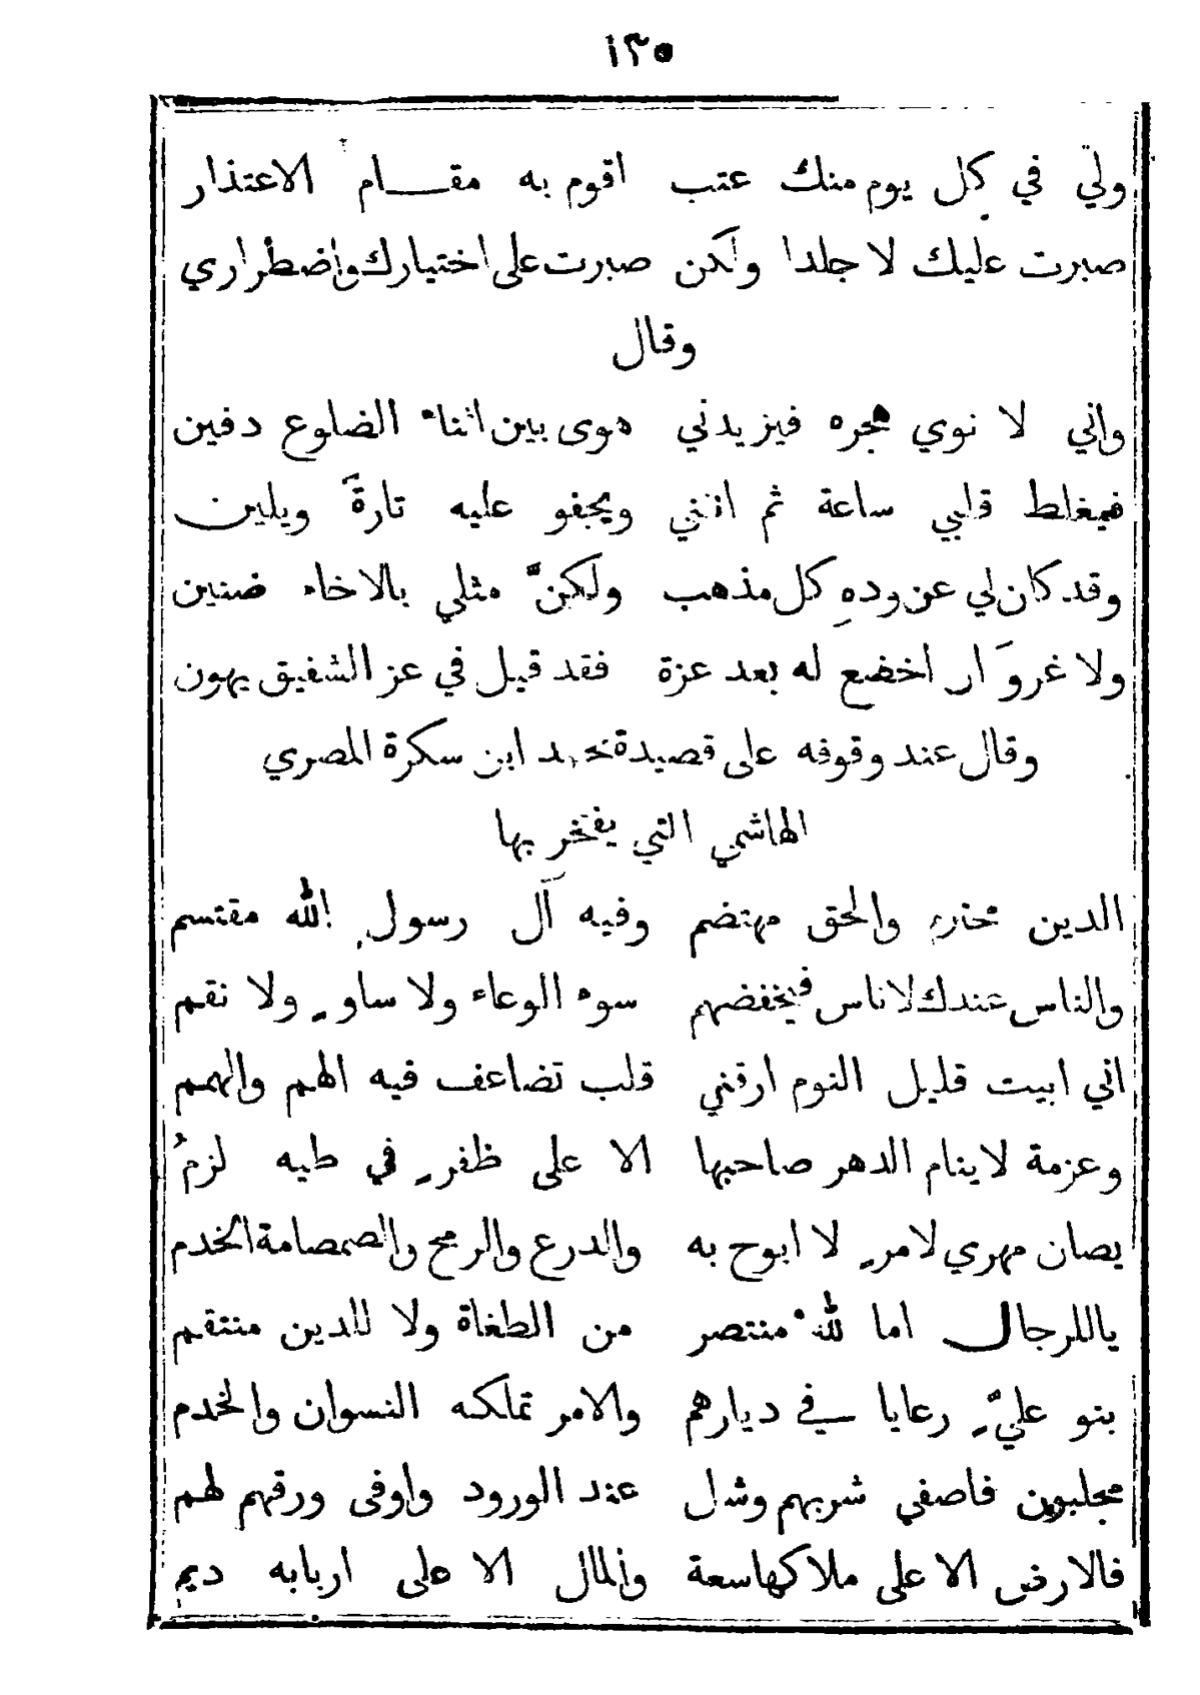 ١٣٥
ولي في كل يوم منك عتب اقوم به مقــام الاعتذار
صبرت عليك لا جلدا ولكن صبرت على اختيارك واضطراري
وقال
واني لا نوي هجره فيزيدني هوى بين اثناء الضلوع دفين
فيغلظ قلبي ساعة ثم انثني ويجفو عليه تارةً ويلين
وقد كان لي عن ودهِ كل مذهب ولكنَّ مثلي بالاخاء ضنين
ولا غروَ ان اخضع له بعد عزة فقد قيل في عز الشفيق يهون
وقال عند وقوفه على قصيدة محمد ابن سكرة المصري
الهاشمي التي يفتخر بها
الدين مخترم والحق مهتضم وفيه آل رسول الله مقتسم
والناس عندك لاناس فيخفضهم سوء الوعاء ولا ساوٍ ولا نقم
اني ابيت قليل النوم ارقني قلب تضاعف فيه الهم والهمم
وعزمة لاينام الدهر صاحبها الا على ظفرٍ في طيه لزمُ
يصان مهري لامرٍ لا ابوح به والدرع والرمح والصمصامة الخدم
ياللرجال اما لله منتصر من الطغاة ولا للدين منتقم
بنو عليٍّ رعايا في ديارهم والامر تملكه النسوان والخدم
مجلبون فاصفي شربهم وشل عند الورود واوفى ورقهم لهم
فالارض الا على ملاكها سعة والمال الا على اربابه ديم